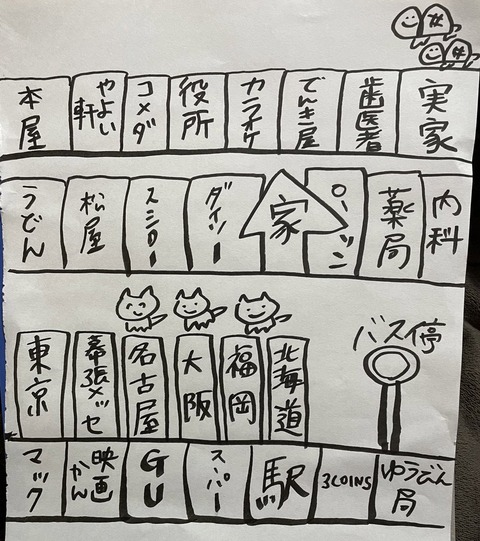 本屋
やよい軒
コメダ
役所
カラオケ
でんき屋
歯医者
実家
うどん
松屋
スシロー
ダイソー
家
ローソン
薬局
内科
東京
幕張メッセ
名古屋
大阪
福岡
北海道
バス停
マック
映画かん
GU
スーパー
駅
3COINS
ゆうびん局